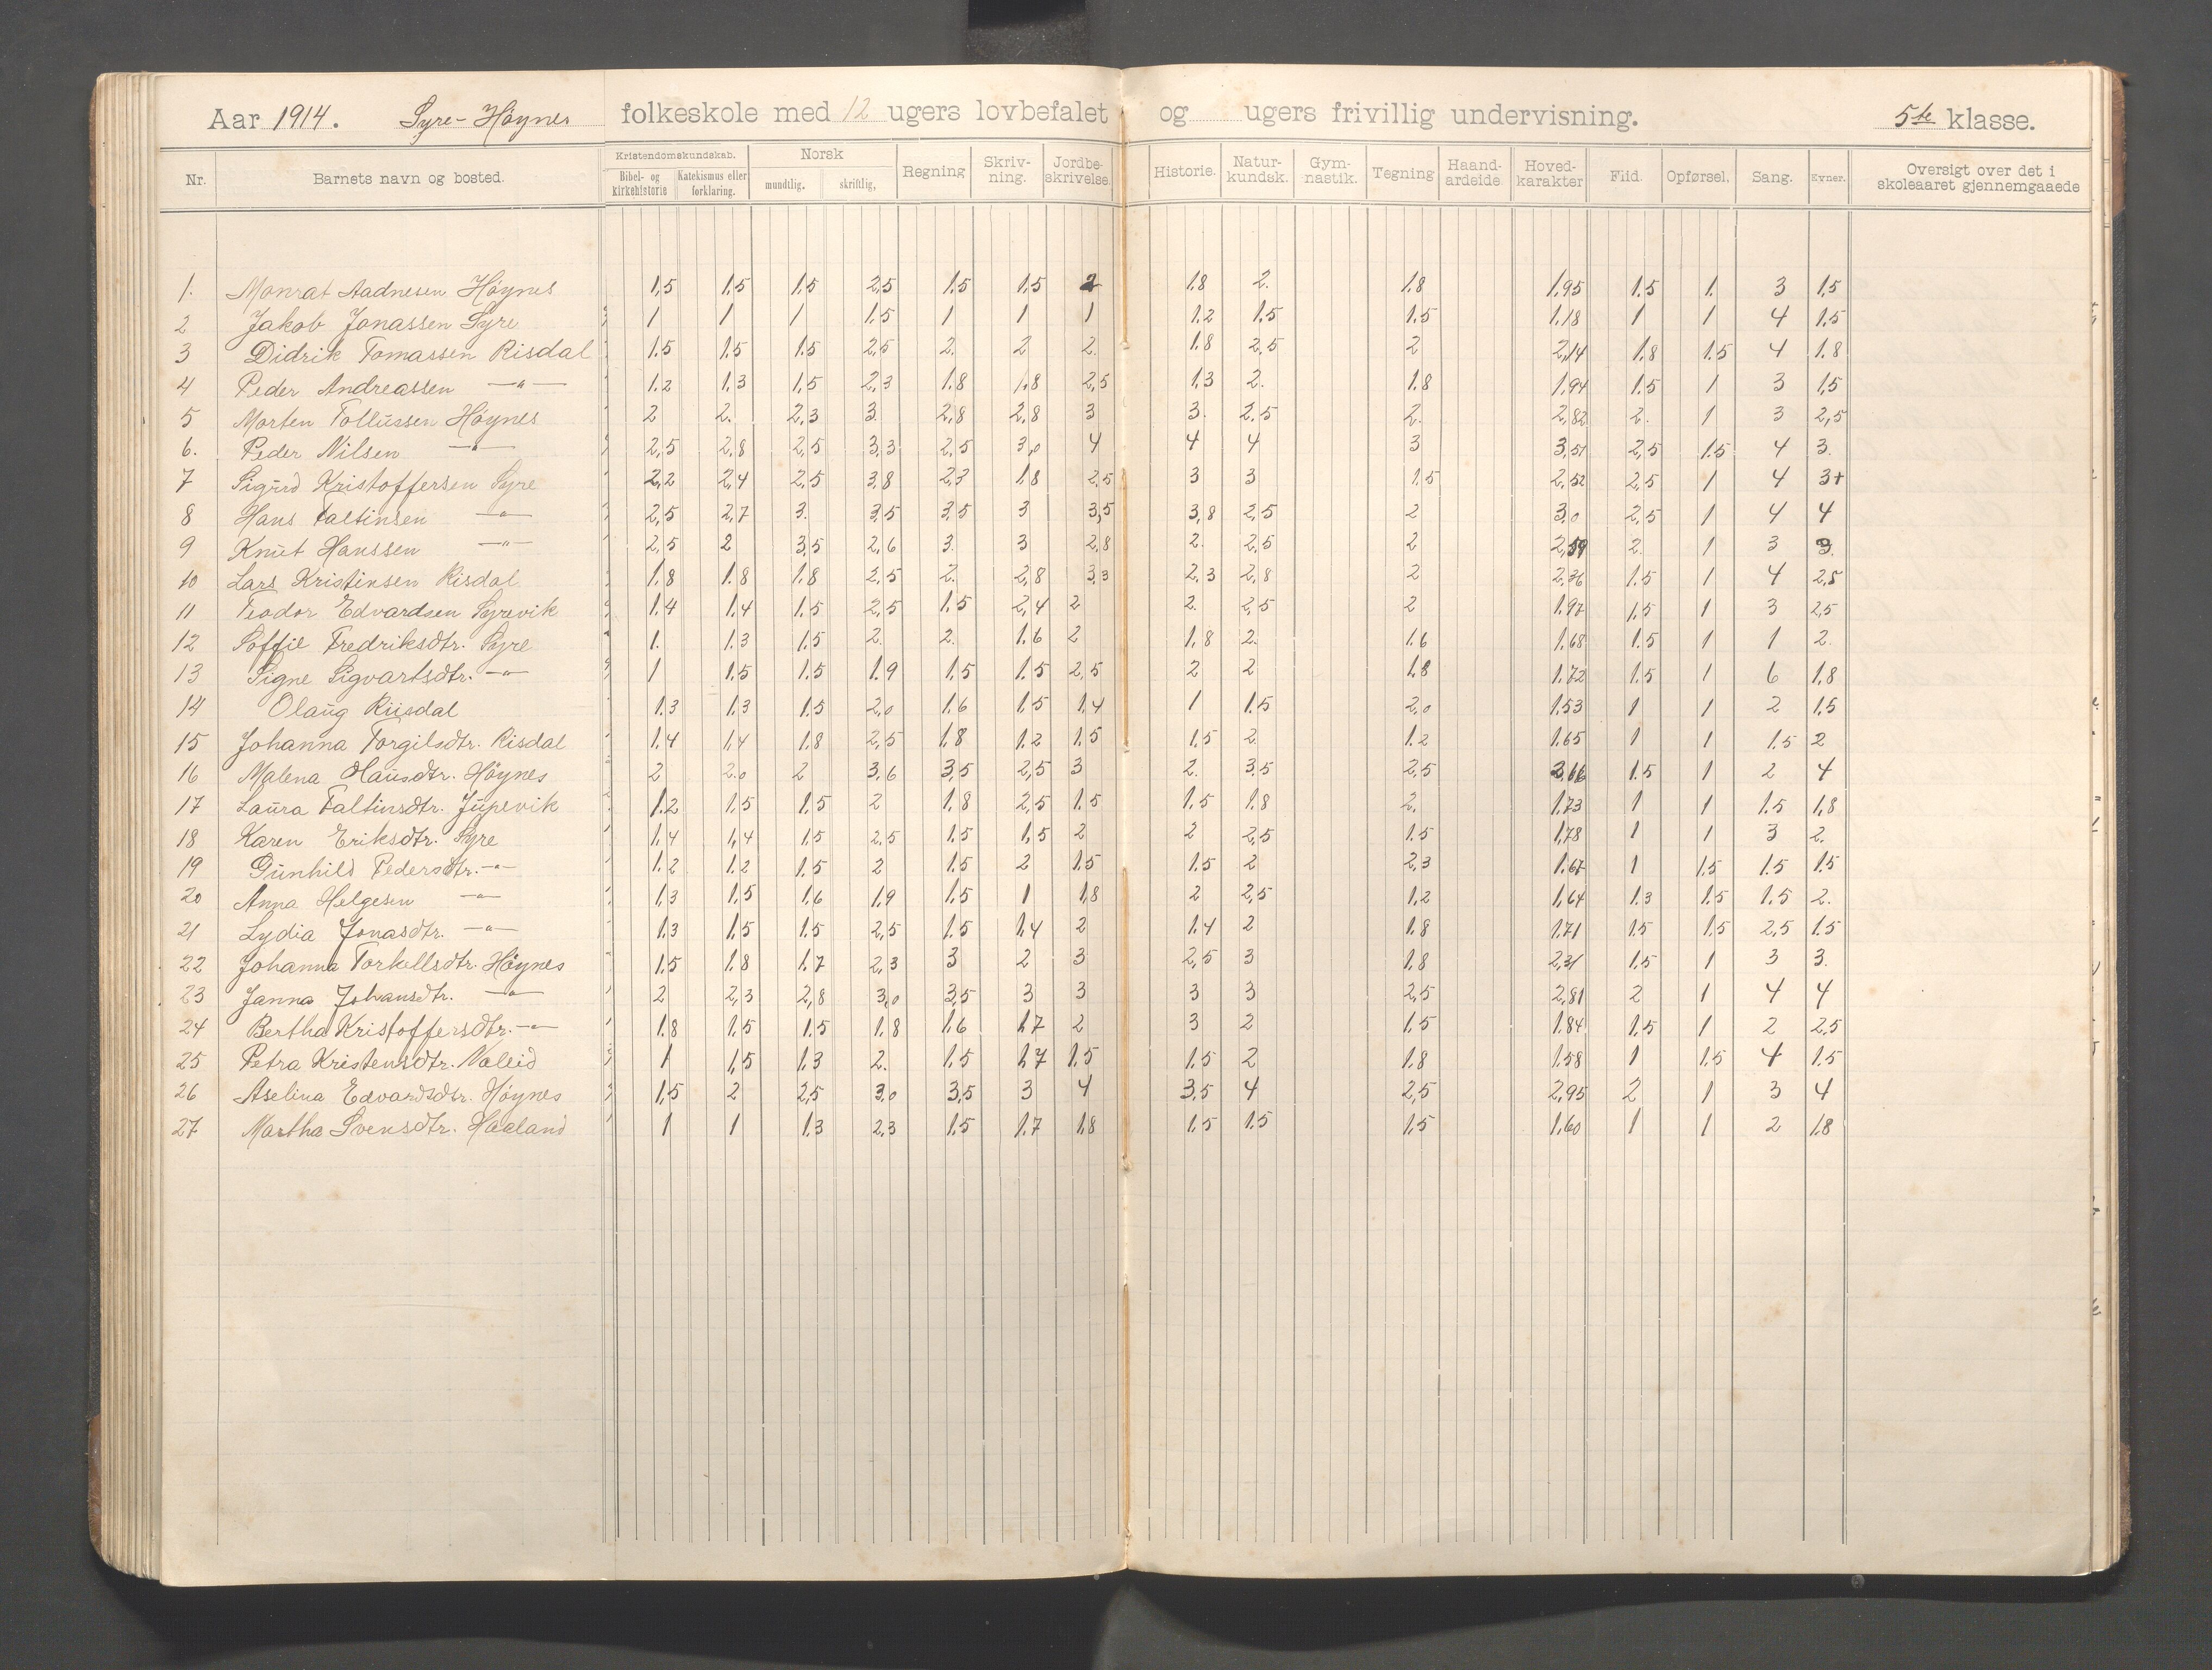 Aar 1914. Syre-Höynes folkeskole med 12 ugers lovbefalet og ugers frivillig undervisning. 5te klasse.
Nr. Barnets navn og bosted. Kristendomskundskab. Bibel- og kirkehistorie Katekismus eller forklaring. Norsk mundtlig. skriftlig, Regning Skriv-ning. Jordbe-skrivelse. Historie. Natur-kundsk. Gym-nastik. Tegning Haand-arbeide Hoved-karakter Flid. Opførsel. Sang. Evner. Oversigt over det i skoleaaret gjennemgaaede
1. Monrat Aadnesen Höynes 1,5 1,5 1,5 2,5 1,5 1,5 2 1,8 2. 1,8 1,95 1,5 1. 3 1,5
2 Jakob Jonassen Syre 1 1 1 1,5 1 1 1 1,2 1,5 1,5 1,18 1 1 4 1,5
3 Didrik Tomassen Risdal 1,5 1,5 1,5 2,5 2. 2 2. 1,8 2,5 2 2,14 1,8 1,5 4 1,8
4 Peder Andreassen —"— 1,2 1,3 1,5 2,3 1,8 1,8 2,5 1,3 2. 1,8 1,94 1,5 1 3 1,5
5 Morten Tollussen Höynes 2 2. 2,3 3. 2,8 2,8 3 3. 2,5 2. 2,82 2. 1 3 2,5
6. Peder Nilsen —"— 2,5 2,8 2,5 3,3 2,5 3,0 4 4 4 3 3,51 2,5 1,5 4 3.
7 Sigurd Kristoffersen Syre 2,2 2,4 2,5 3,8 2,3 1,8 2,5 3 3 1,5 2,52 2,5 1 4 3+
8 Hans Faltinsen —"— 2,5 2,7 3. 3,5 3,5 3 3,5 3,8 2,5 2 3,0 2,5 1 4 4
9 Knut Hanssen —"— 2,5 2 3,5 2,6 3. 3 2,8 2. 2,5 2 2,59 2. 1 3 3.
10 Lars Kristinsen Risdal 1,8 1,8 1,8 2,5 2. 2,8 3,3 2,3 2,8 2 2,36 1,5 1 4 2,5
11 Teodor Edvardsen Syrevik 1,4 1,4 1,5 2,5 1,5 2,4 2 2. 2,5 2 1,97 1,5 1 3 2,5
12 Soffie Fredriksdtr. Syre 1. 1,3 1,5 2. 2. 1,6 2 1,8 2. 1,6 1,68 1,5 1 1 2.
13 Signe Sigvartsdtr. —"— 1 1,5 1,5 1,9 1,5 1,5 2,5 2 2 1,8 1,72 1,5 1 6 1,8
14 Olaug Riisdal 1,3 1,3 1,5 2,0 1,6 1,5 1,4 1 1,5 2,0 1,53 1 1 2 1,5
15 Johanna Torgilsdtr. Risdal 1,4 1,4 1,8 2,5 1,8 1,2 1,5 1,5 2 1,2 1,65 1 1 1,5 2
16 Malena Hausdtr. Höynes 2 2,0 2 3,6 3,5 2,5 3 2. 3,5 2,5 1,5 1 2 4
17 Laura Faltinsdtr. Jupevik 1,2 1,5 1,5 2 1,8 2,5 1,5 1,5 1,8 2. 1,73 1 1 1,5 1,8
18 Karen Eriksdtr. Syre 1,4 1,4 1,5 2,5 1,5 1,5 2 2 2,5 1,5 1,78 1 1 3 2.
19 Gunhild Pedersdtr. —"— 1,2 1,2 1,5 2 1,5 2 1,5 1,5 2 2,3 1,67 1 1,5 1,5 1,5
20 Anna Helgesen —"— 1,3 1,5 1,6 1,9 1,5 1 1,8 2 2,5 1,2 1,64 1,3 1,5 1,5 2.
21 Lydia Jonasdtr. —"— 1,3 1,5 1,5 2,5 1,5 1,4 2 1,4 2 1,8 1,71 1,5 1,5 2,5 1,5
22 Johanna Torkellsdtr. Höynes 1,5 1,8 1,7 2,3 3 2 3 2,5 3 1,8 2,31 1,5 1 3 3.
23 Janna Johansdtr. —"— 2 2,3 2,8 3,0 3,5 3 3 3 3 2,5 2,81 2 1 4 4
24 Bertha Kristoffersdtr. —"— 1,8 1,5 1,5 1,8 1,6 1,7 2 3 2 1,5 1,84 1,5 1 2 2,5
25 Petra Kristensdtr. Valeid 1 1,5 1,3 2. 1,5 1,7 1,5 1,5 2 1,8 1,58 1 1,5 4 1,5
26 Aselina Edvardsdtr. Höynes 1,5 2 2,5 3,0 3,5 3 4 3,5 4 2,5 2,95 2 1 3 4
27 Martha Svensdtr. Haaland 1 1 1,3 2,3 1,5 1,7 1,8 1,5 1,5 1,5 1,60 1 1 2 1,8